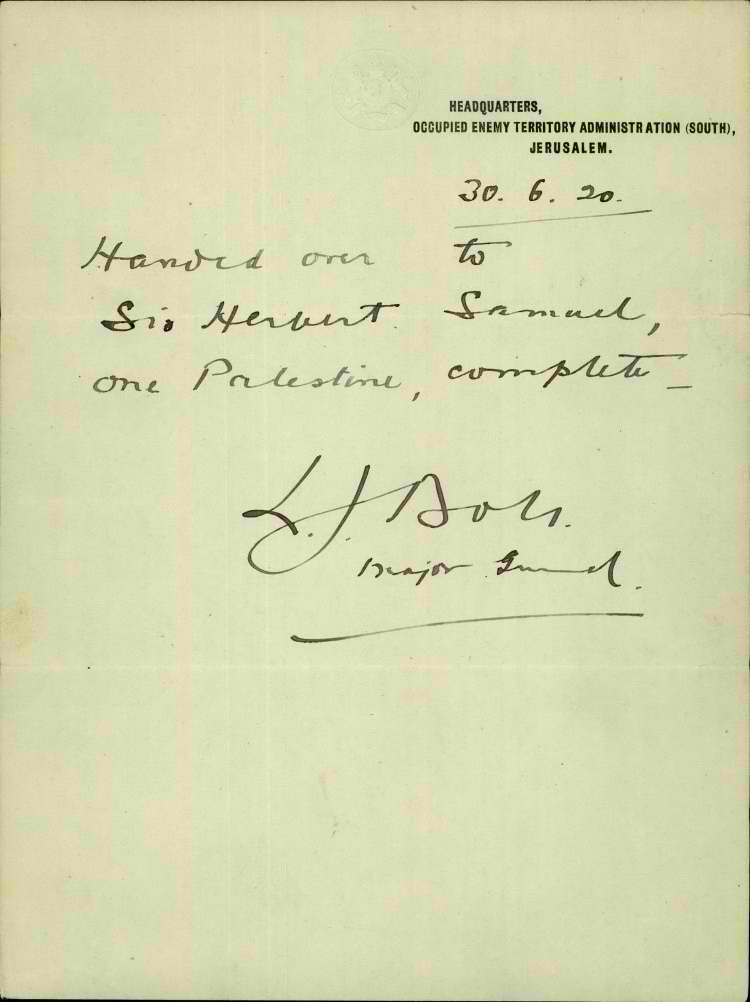 HEADQUARTERS,
OCCUPIED ENEMY TERRITORY ADMINISTRATION (SOUTH),
JERUSALEM.
30. 6. 20.
Handed over to
Sir Herbert Samuel,
one Palestine, complete _
L.J. Bols.
Major General.